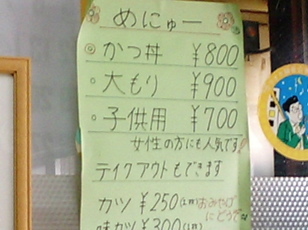 めにゅー
◎かつ丼 ¥800
・大もり ¥900
・子供用 ¥700
女性の方にも人気です!!
テイクアウトもできます
カツ ¥250(1枚) おみやげ
にどうぞ
味カツ ¥300(1枚)